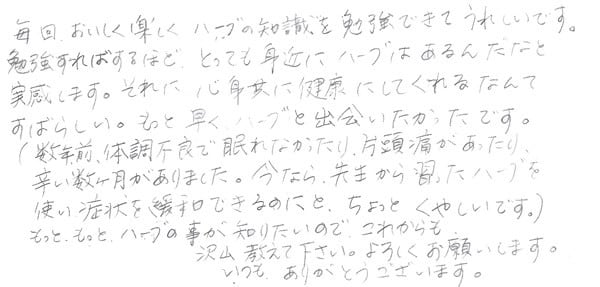 毎回、おいしく楽しく ハーブの知識を 勉強できて うれしいです。
勉強すればするほど、とっても 身近に ハーブは あるんだなと
実感します。それに 心身共に 健康 にしてくれる なんて
すばらしい。もっと 早く ハーブと 出会いたかった です。
(数年前、体調不良で 眠れなかったり、片頭痛が あったり、
辛い 数ヶ月が ありました。今なら、先生から 習った ハーブを
使い 症状を 緩和 できるのにと、ちょっと くやしいです。)
もっと、もっと、ハーブの 事が 知りたいので、これからも
沢山 教えて 下さい。よろしく お願いします。
いつも、ありがとうございます。